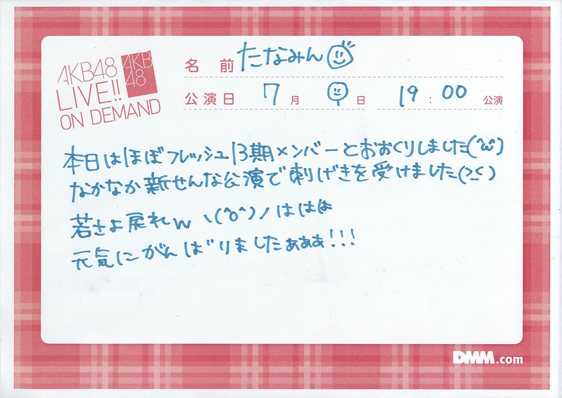 AKB48
LIVE!!
ON DEMAND
AKB
48
名 前 たなみん
公演日 7月 9日 19:00 公演
本日はほぼフレッシュ13期メンバーとおおくりしました(^ω^)
なかなか新せんな公演で刺げきを受けました(>_<)
若さよ戻れw ヽ(^o^)ノははは
元気にがんばりましたぁぁぁ!!!
DMM.com